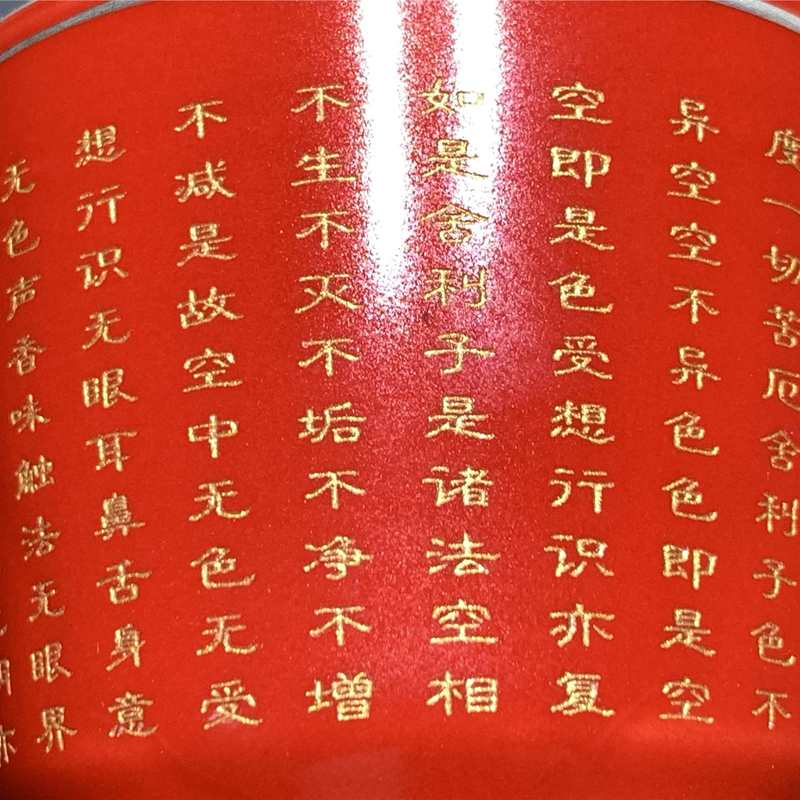 度一切苦厄舍利子色不
异空空不异色色即是空
空即是色受想行识亦复
如是舍利子是诸法空相
不生不灭不垢不净不增
不减是故空中无色无受
想行识无眼耳鼻舌身意
无色声香味触法无眼界